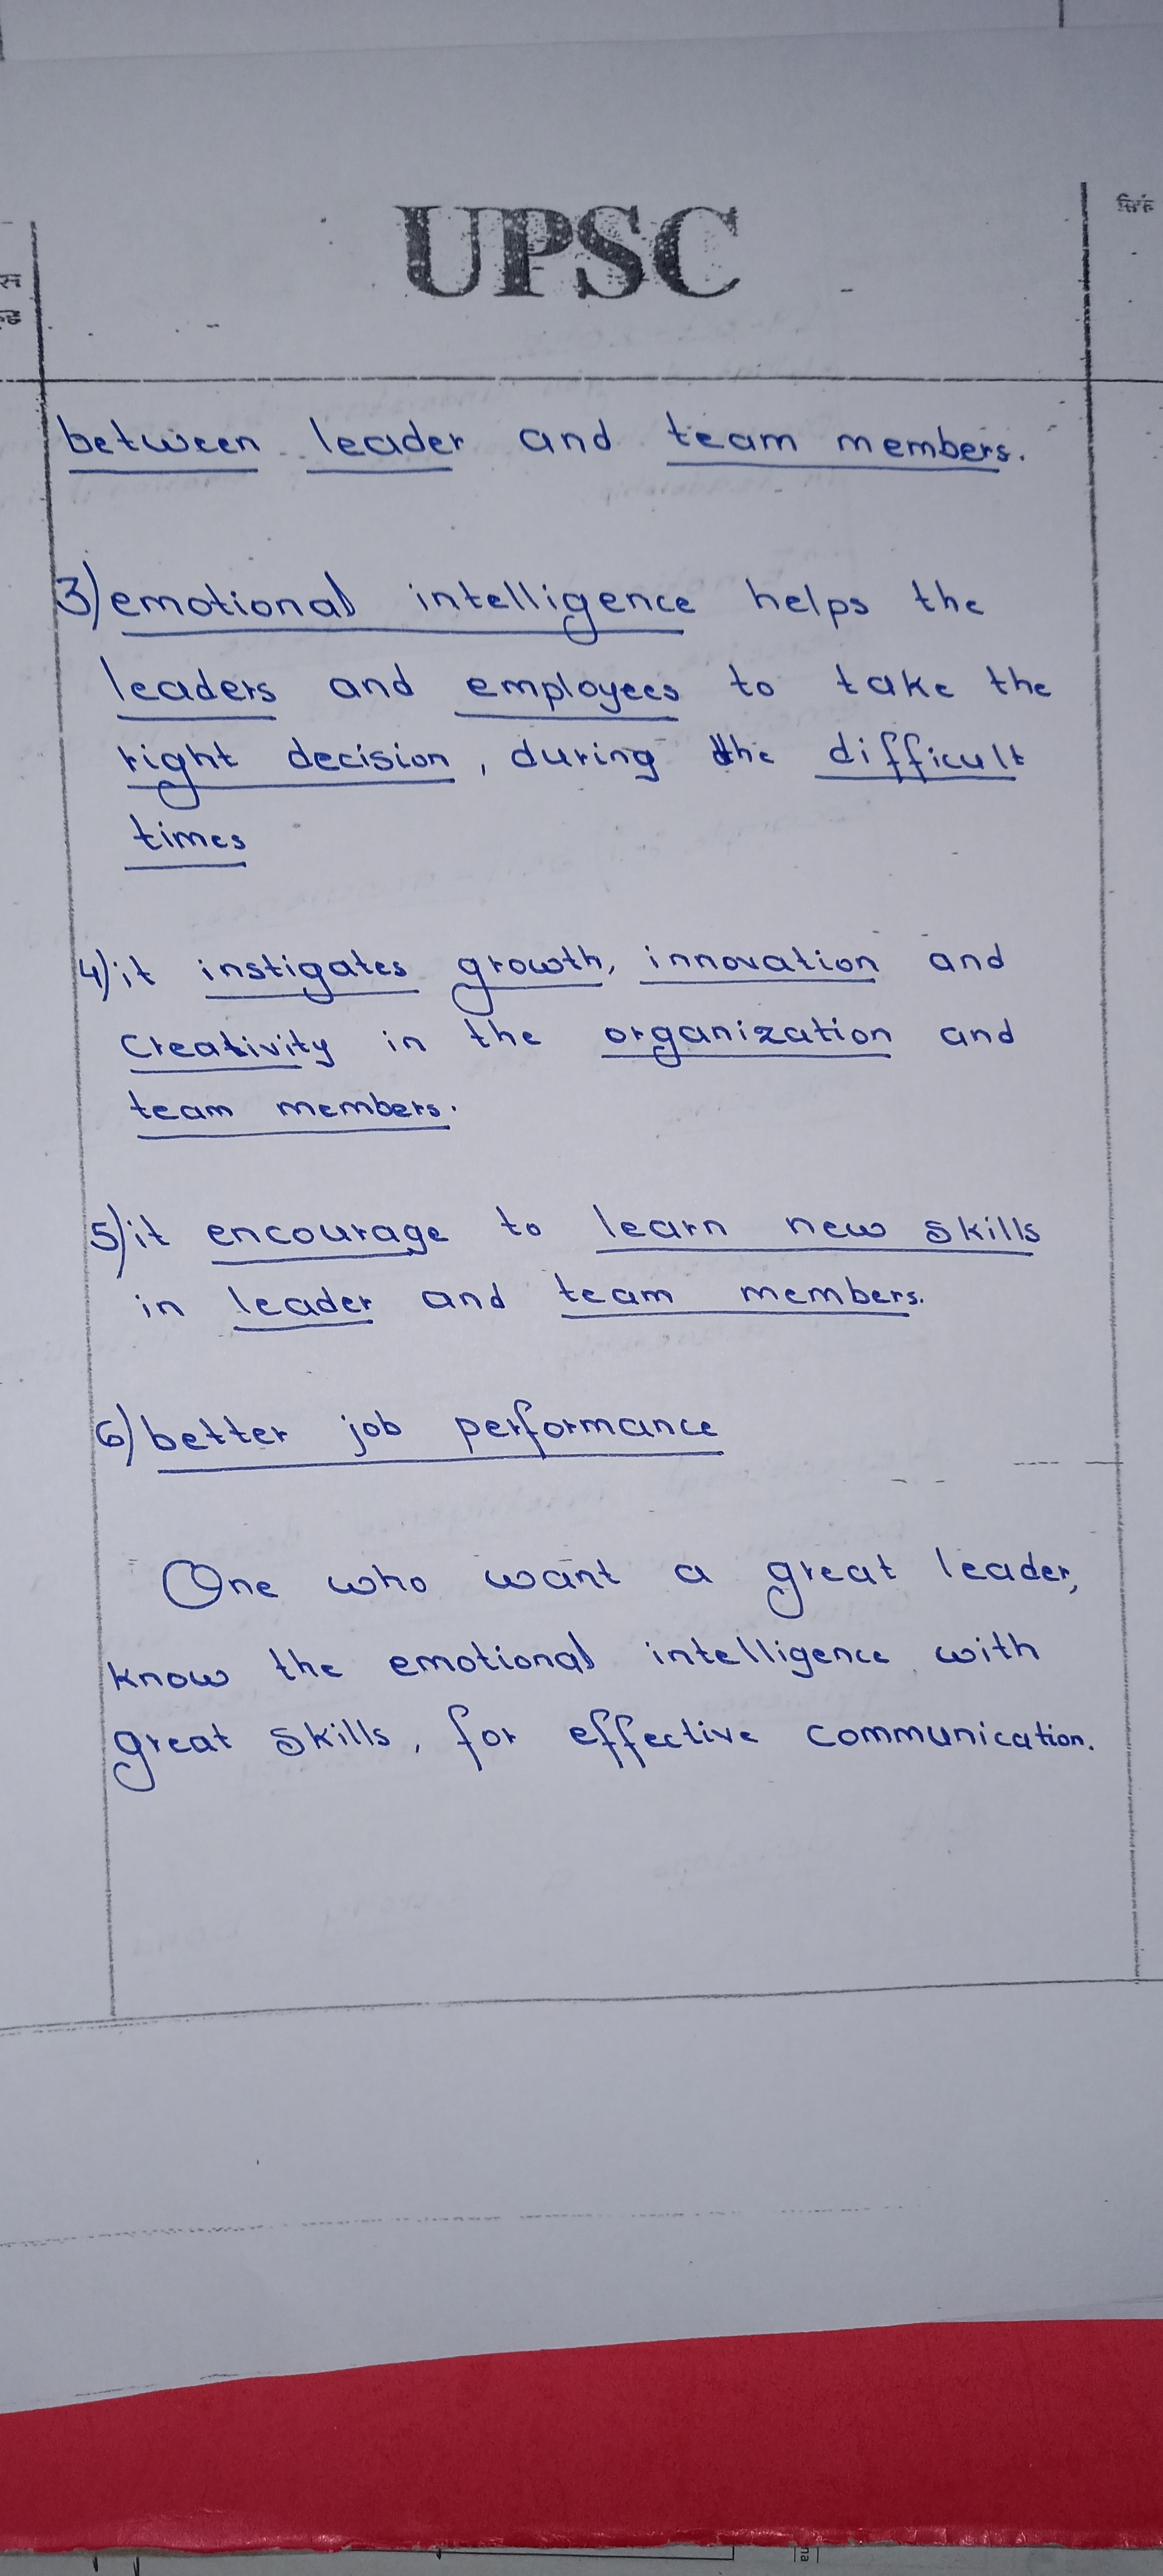 UPSC
between leader and team members.
3) emotional intelligence helps the
leaders and employees to take the
right decision, during the difficult
times
4) it instigates growth, innovation and
Creativity in the organization and
team members.
5) it encourage to learn new skills
in leader and team members.
6) better job performance
One who want a great leader,
know the emotional intelligence with
great skills, for effective communication.